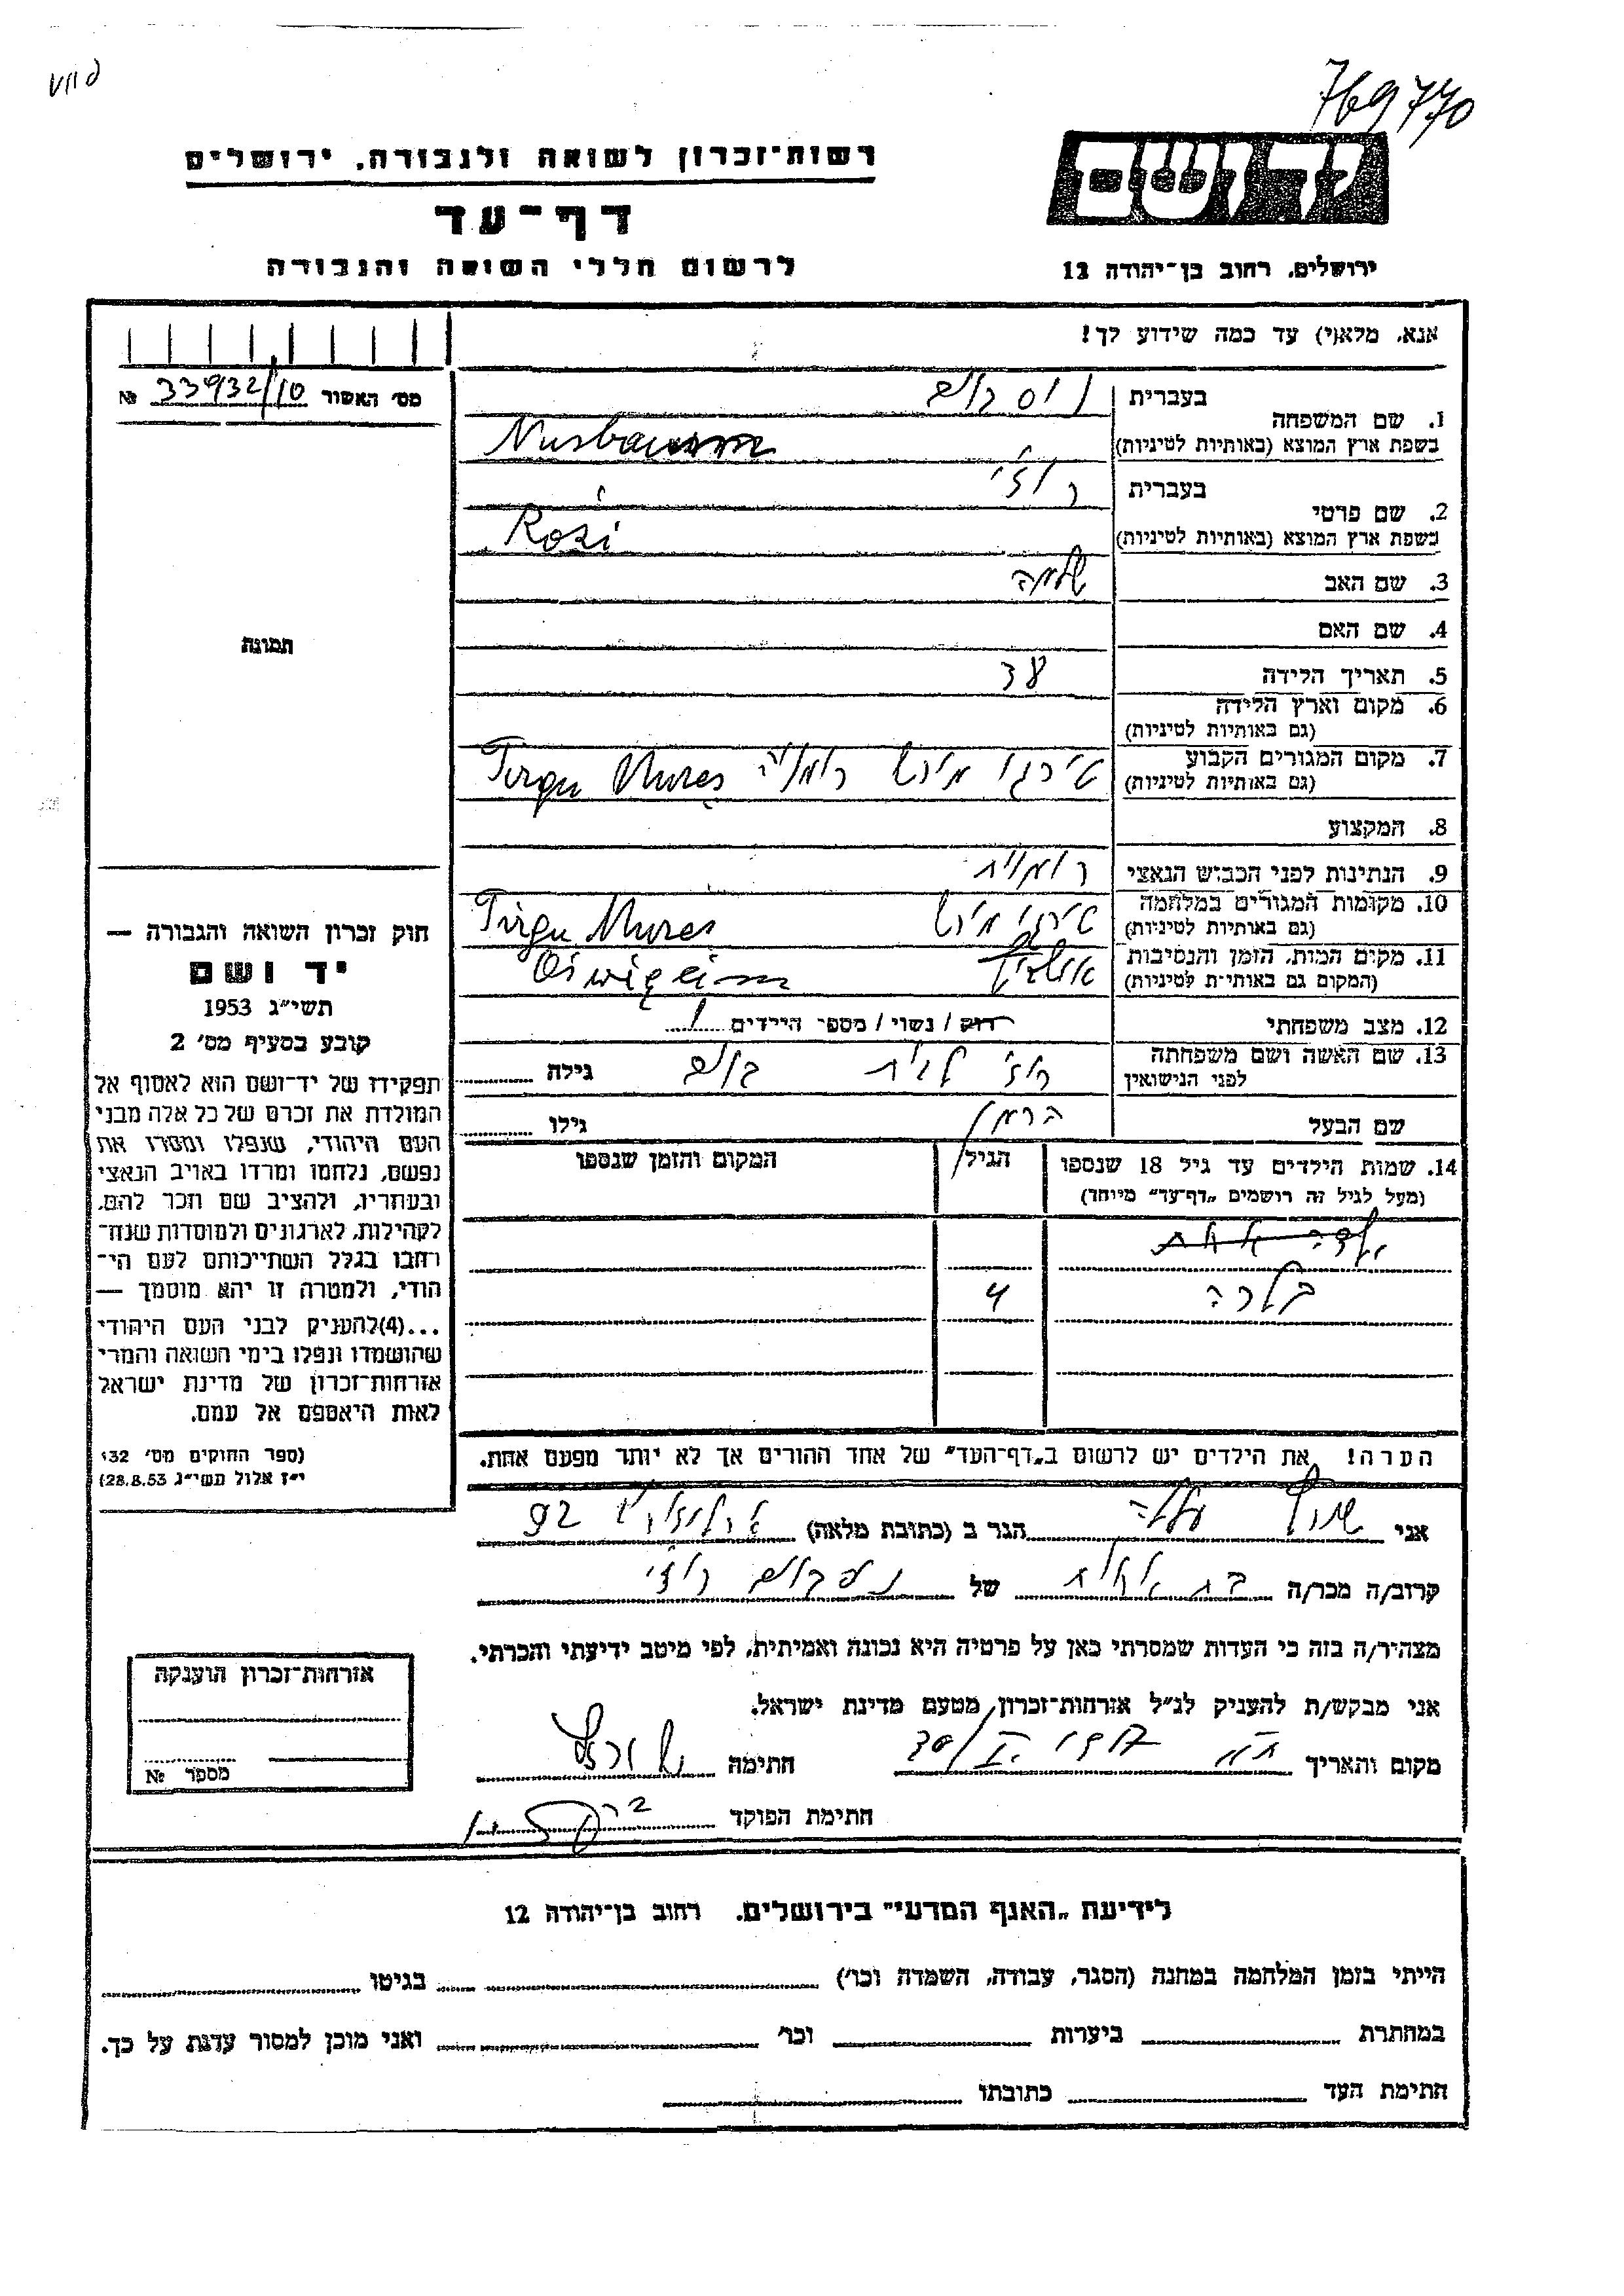 769770
רשות־זכרון לשואה ולגבורה, ירושלים
דף־עד
לרשום חללי השואה והגבורה
יד ושם
ירושלים, רחוב בן־יהודה 12
אנא, מלא(י) עד כמה שידוע לך!
מס' האשור 33932/10 №
1. שם המשפחה בעברית נוסבוים
בשפת ארץ המוצא (באותיות לטיניות) Nusbaum
2. שם פרטי בעברית רוזי
בשפת ארץ המוצא (באותיות לטיניות) Rozi
3. שם האב שלמה
4. שם האם
5. תאריך הלידה 38
6. מקום וארץ הלידה
(גם באותיות לטיניות)
7. מקום המגורים הקבוע טירגו מורש רומניה Tirgu Mureş
(גם באותיות לטיניות)
8. המקצוע
9. הנתינות לפני הכבוש הנאצי רומנית
10. מקומות המגורים במלחמה טירגו מורש Tirgu Mures
(גם באותיות לטיניות)
11. מקום המות, הזמן והנסיבות אושויץ Oświęcim
(המקום גם באותיות לטיניות)
12. מצב משפחתי רווק / נשוי / מספר הילדים 1
13. שם האשה ושם משפחתה רוזי לבית בוים גילה
לפני הנישואין
שם הבעל הרמן גילו
14. שמות הילדים עד גיל 18 שנספו הגיל המקום והזמן שנספו
(מעל לגיל זה רושמים „דף־עד" מיוחד)
ילדה אחת
4
הערה! את הילדים יש לרשום ב„דף־העד" של אחד ההורים אך לא יותר מפעם אחת.
תמונה
חוק זכרון השואה והגבורה —
יד ושם
תשי"ג 1953
קובע בסעיף מס' 2
תפקידו של יד־ושם הוא לאסוף אל
המולדת את זכרם של כל אלה מבני
העם היהודי, שנפלו ומסרו את
נפשם, נלחמו ומרדו באויב הנאצי
ובעוזריו, ולהציב שם וזכר להם,
לקהילות, לארגונים ולמוסדות שנח־
רבו בגלל השתייכותם לעם הי־
הודי, ולמטרה זו יהא מוסמך —
...(4) להעניק לבני העם היהודי
שהושמדו ונפלו בימי השואה והמרי
אזרחות־זכרון של מדינת ישראל
לאות היאספם אל עמם.
(ספר החוקים מס' 132
י"ז אלול תשי"ג 28.8.53)
אני הגר ב (כתובת מלאה) 92
קרוב/ה מכר/ה בת אחות של נוסבוים רוזי
מצהיר/ה בזה כי העדות שמסרתי כאן על פרטיה היא נכונה ואמיתית, לפי מיטב ידיעתי והכרתי.
אני מבקש/ת להעניק לנ"ל אזרחות־זכרון, מטעם מדינת ישראל.
מקום ותאריך 30/I 1957 חתימה
חתימת הפוקד
אזרחות־זכרון הוענקה
מספר №
לידיעת „האגף המדעי" בירושלים, רחוב בן־יהודה 12
הייתי בזמן המלחמה במחנה (הסגר, עבודה, השמדה וכו') בגיטו
במחתרת ביערות וכו' ואני מוכן למסור עדות על כך.
חתימת העד כתובתו